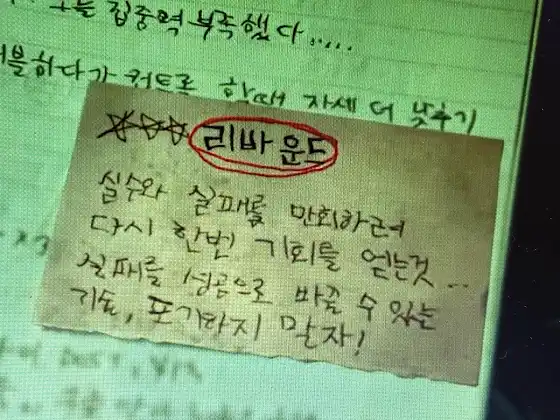 오늘 집중력 부족했다.....
블하다가 컨트롤 할때 자세 더 낮추기
리바운드
실수와 실패를 만회하려
다시 한번 기회를 얻는것...
실패를 성공으로 바꿀 수 있는
기회, 포기하지 말자!
x 3